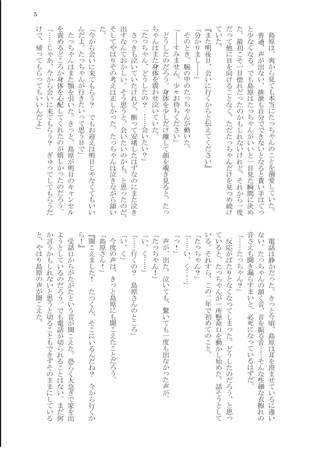 5
島原は、爽から見ても本当にたっちゃんのことを溺愛していた。
普通、声が出ない、排泄も自分でできないとなると貰い手はぐっ
と少なくなる。でも島原はたっちゃんがいいと一目見た瞬間に決め
た。最初こそ一目惚れだったのかもしれないけれど、それから二度
だって他に目を向けることなく、ただたっちゃんだけを見つめ続け
『分かりました』
『また明後日、会いに行くからと伝えてください』
そのとき、腕の中のたっちゃんが動いた。
「――すみません、少々お待ちください」
たっちゃんは身体を震わせて泣いていた。
「たっちゃん、どうしたの？　……会いたい？」
さっきも泣いていたけれど、断って安堵したはずなのにまた泣き
出すなんておかしい。そう思うと、会いたいのかも、と思ったのだ。
そしてやはりその考えは正しかった。たっちゃんは泣きながら頷い
「今から会いに来てもらう？　でもお迎えは明日じゃなくてもいい
んだよ。たっちゃんが行きたいって思う日で」
たっちゃんはまた頷いた。きっと、島原が明日のキャンセル
を責めるどころか身体を心配してくれたのが嬉しかったのだろう。
「……じゃあ、今から会いに来てもらう？　ぎゅってしてもらうだ
けで、帰ってもらってもいいんだよ」
電話は静かだった。きっと今頃、島原は耳を澄ませているに違い
ない。たっちゃんの頷く音、首を振る音……そんな些細な衣擦れの
音さえも聞き漏らすまいと、必死になっているはずだ。
「……たっちゃん？」
反応がぱたりとなくなってしまった。どうしたのだろう、と思っ
ていると、たっちゃんが一所懸命口を動かし始めた。話そうとして
いる。それすら、この二年で初めてのこと。
「たっちゃん？」
「……い、く……」
「っ！」
声が、出た。泣いても、驚いても一度も出なかった声が。
「……い、く……」
「……行くの？　島原さんのところ」
「い、く」
今度の声は、きっと島原にも聞こえたことだろう。
「島原さん！」
『聞こえました！　たつくん、そこにいるんだね？　今から行くか
ら！』
受話口からがたがたという音が聞こえた。恐らく大急ぎで家を出
ようとしているのだろう。でも電話が切られることはない。まだ何
か言うかもしれないと思うと切ることもできずそのままにしている
と、やはり島原の声が聞こえた。